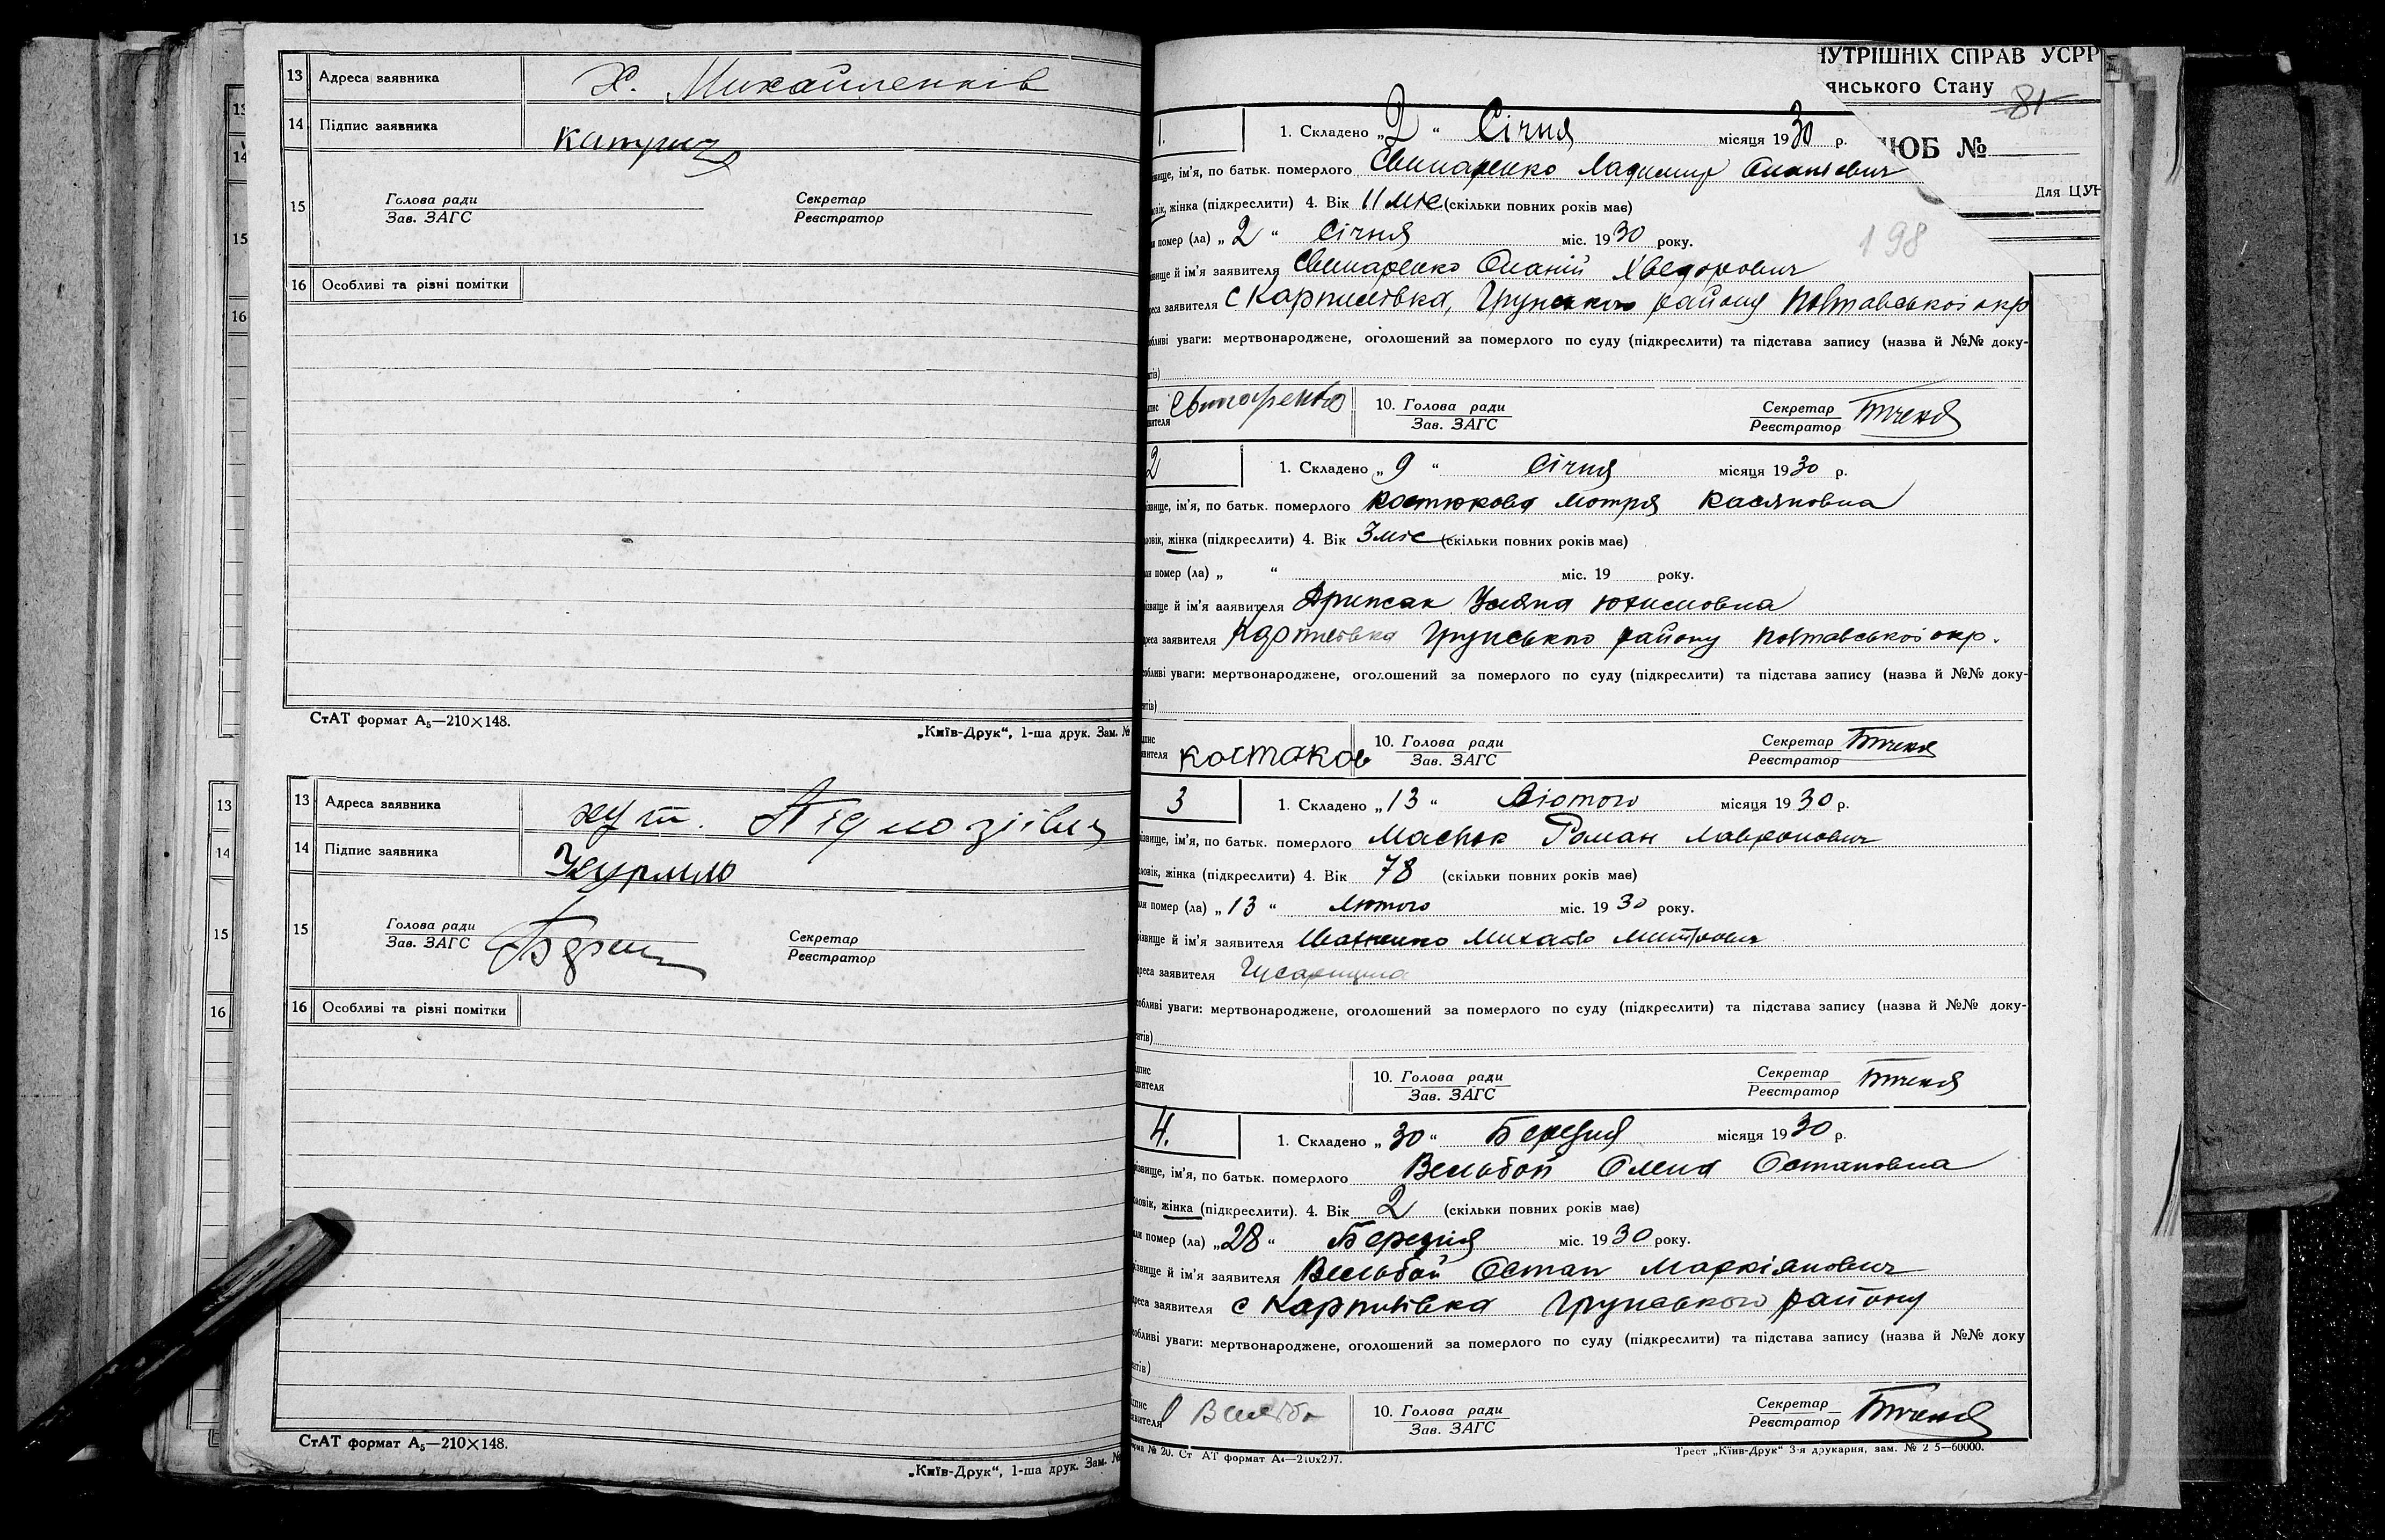 13 Адреса заявника Х. Михайленків
14 Підпис заявника Катрич
15 Голова ради Секретар
Зав. ЗАГС Реєстратор
16 Особливі та різні помітки
СтАТ формат А5—210×148.
„Київ-Друк“, 1-ша друк. Зам. №
13 Адреса заявника хут.
14 Підпис заявника Журмило
15 Голова ради Секретар
Зав. ЗАГС Реєстратор
16 Особливі та різні помітки
СтАТ формат А5—210×148.
„Київ-Друк“, 1-ша друк. Зам. №
13
14
15
16
13
14
15
16
НУТРІШНІХ СПРАВ УСРР
янського Стану 81
ЛЮБ №
Для ЦУН
198
1. 1. Складено „2“ Січня місяця 1930 р.
звище, ім'я, по батьк. померлого Свинаренко Ладимир Онанієвич
жінка (підкреслити) 4. Вік 11 міс (скільки повних років має)
помер (ла) „2“ Січня міс. 1930 року.
звище й ім'я заявителя Свинаренко Онаній Хведорович
реса заявителя с Карпилівка, Грунського району Полтавської окр
обливі уваги: мертвонароджене, оголошений за померлого по суду (підкреслити) та підстава запису (назва й №№ доку-
нтів)
пис Свинаренко 10. Голова ради Секретар
явителя Зав. ЗАГС Реєстратор
2 1. Складено „9“ Січня місяця 1930 р.
звище, ім'я, по батьк. померлого Костюкова Мотря Касяновна
ловік, жінка (підкреслити) 4. Вік 3 міс (скільки повних років має)
помер (ла) „ “ міс. 19 року.
звище й ім'я заявителя Уляна Юхимовна
реса заявителя Карпилівка Грунського району Полтавської окр.
обливі уваги: мертвонароджене, оголошений за померлого по суду (підкреслити) та підстава запису (назва й №№ доку-
нтів)
пис 10. Голова ради Секретар
явителя Костюков Зав. ЗАГС Реєстратор
3 1. Складено „13“ Лютого місяця 1930 р.
звище, ім'я, по батьк. померлого Роман
ловік, жінка (підкреслити) 4. Вік 78 (скільки повних років має)
помер (ла) „13“ Лютого міс. 1930 року.
звище й ім'я заявителя Михайло
реса заявителя Гусарщина
обливі уваги: мертвонароджене, оголошений за померлого по суду (підкреслити) та підстава запису (назва й №№ доку-
нтів)
пис 10. Голова ради Секретар
явителя Зав. ЗАГС Реєстратор
4. 1. Складено „30“ Березня місяця 1930 р.
звище, ім'я, по батьк. померлого Вельбой Олена Остаповна
ловік, жінка (підкреслити). 4. Вік 2 (скільки повних років має)
помер (ла) „28“ Березня міс. 1930 року.
звище й ім'я заявителя Вельбой Остап Маркіянович
реса заявителя с Карпилівка Грунського району
обливі уваги: мертвонароджене, оголошений за померлого по суду (підкреслити) та підстава запису (назва й №№ доку
нтів)
пис 10. Голова ради Секретар
явителя Зав. ЗАГС Реєстратор
орма № 20. Ст АТ формат А4—210х297.
Трест „Київ-Друк“ 3-я друкарня, зам. № 2 5—60000.